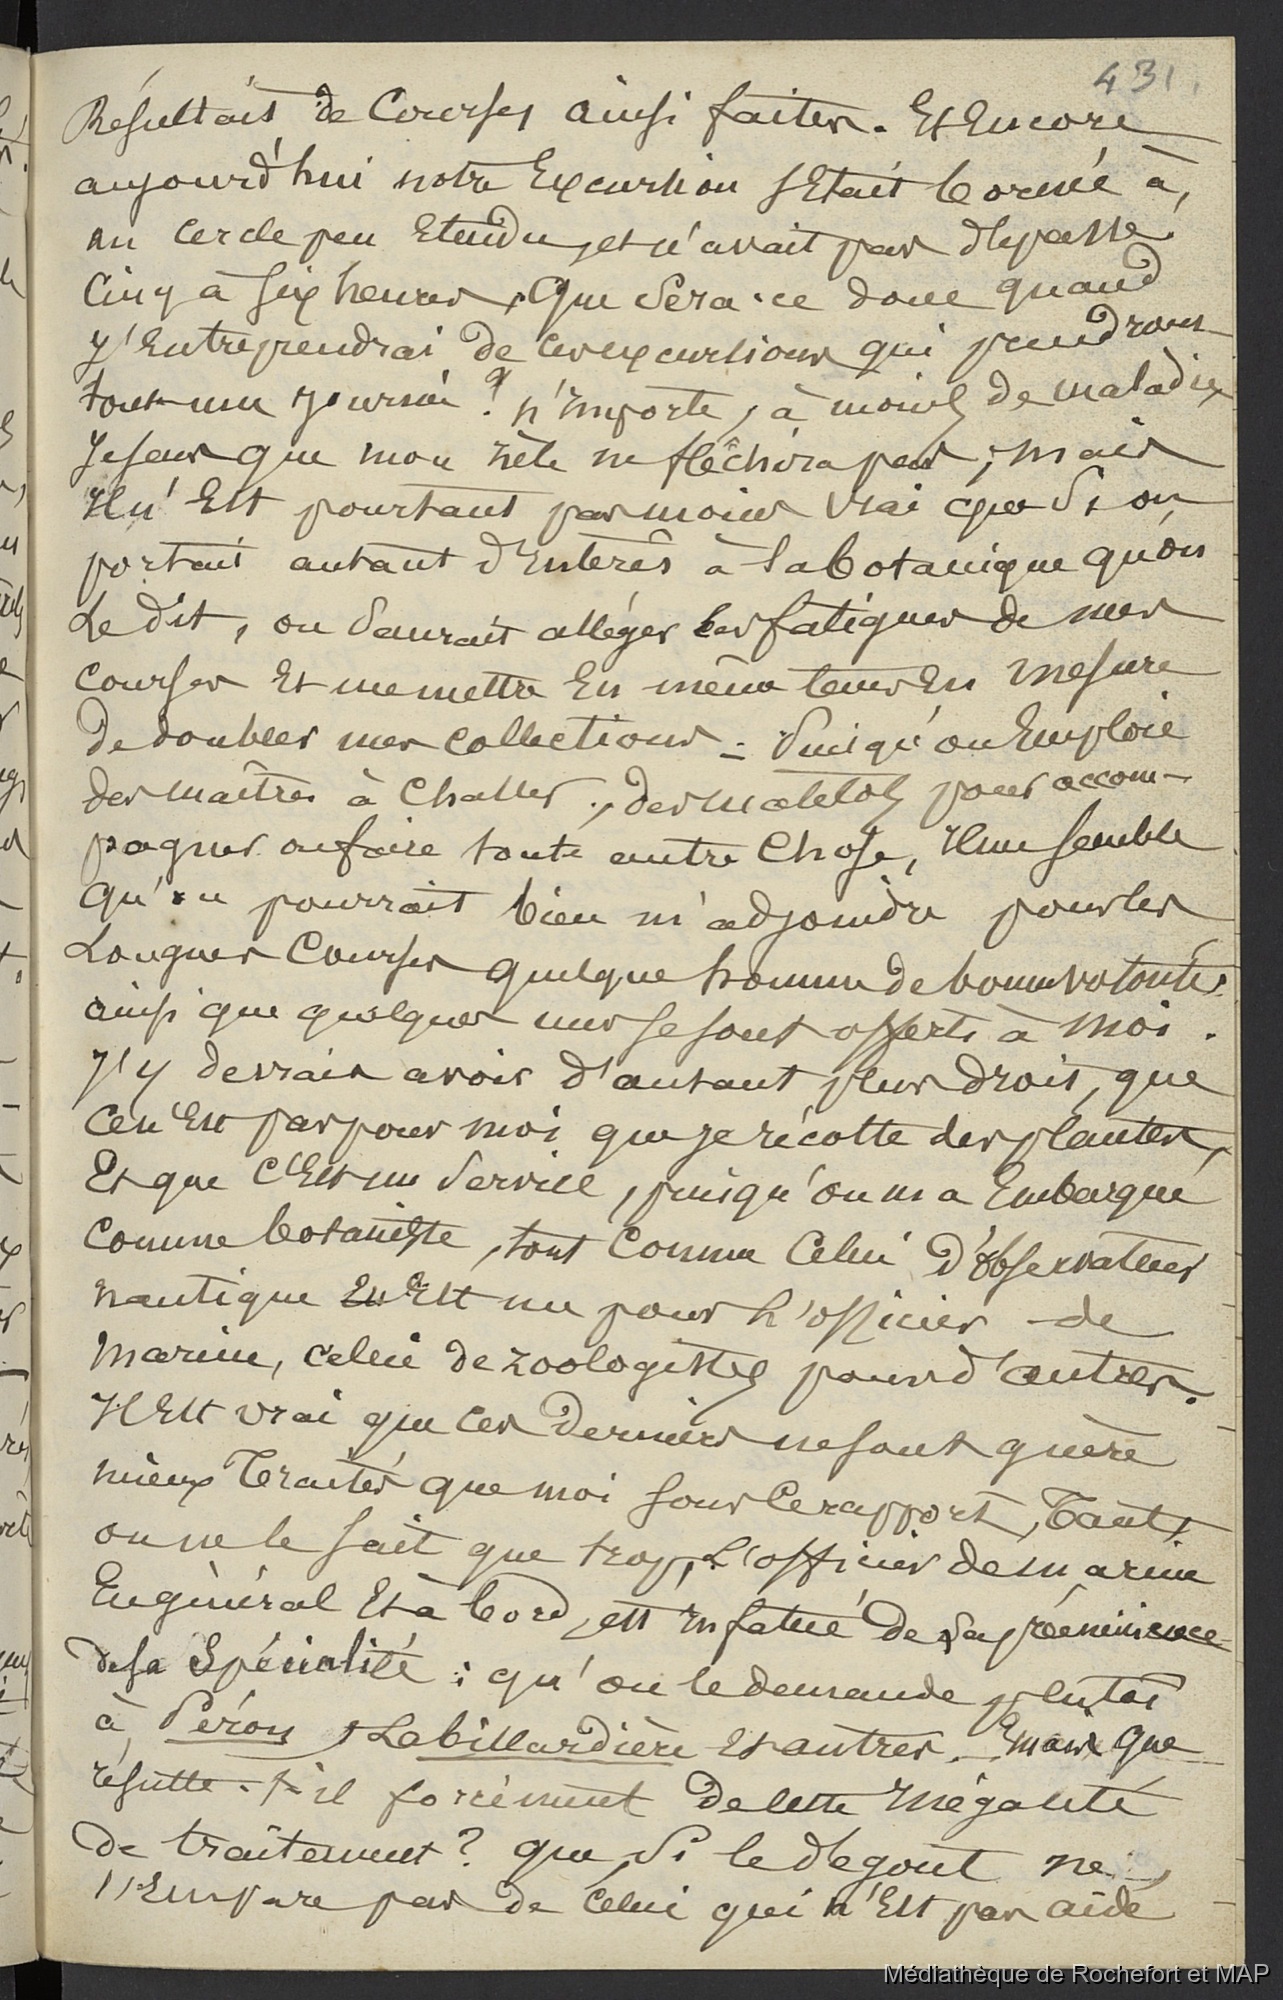 431.
Résultats de Courses ainsi faites. Et Encore
aujourd'hui notre Excursion s'Etait bornée à,
un cercle peu Etendu, et n'avait pas dépassé
Cinq à six heures, Que sera-ce donc quand
j'Entreprendrai de ces excursions qui prendront
toute une journée? n'importe, à moins de maladies
Je sens que mon zèle ne fléchira pas; mais
Il n'Est pourtant pas moins vrai que si on
portait autant d'Interêt à la botanique qu'on
Le dit, on saurait alléger les fatigues de mes
courses Et me mettre En même tems En mesure
De doubler mes collections - Puisqu'on Emploie
des maîtres à Chasser, des matelots pour accom-
pagner ou faire toute autre Chose, Il me semble
qu'on pourrait bien m'adjoindre pour les
Longues Courses quelque homme de bonne volonté,
ainsi que quelques uns se sont offerts à Moi.
J'y devrais avoir d'autant plus droit, que
Ce n'Est pas pour moi que je récolte des plantes,
Et que C'Est un service, puisqu'on m'a Embarqué
Comme botaniste, tout Comme Celui d'observateur
nautique En Est un pour l'officier de
Marine, celui de zoologistes pour d'autres.
Il Est vrai que ces Derniers ne sont guère
mieux Traités que moi sous ce rapport, Tant,
on ne le sait que trop, L'officier de marine
En général Et à bord, est infatué de la prééminence
de sa Spécialité: qu'on le demande plutôt
à Péron, Labillardière Et autres. Mais que
résulte-t-il forcément De cette Inégalité
De traitement? que, si le dégout ne
s'Empare pas de Celui qui n'Est pas aidé
Médiathèque de Rochefort et MAP